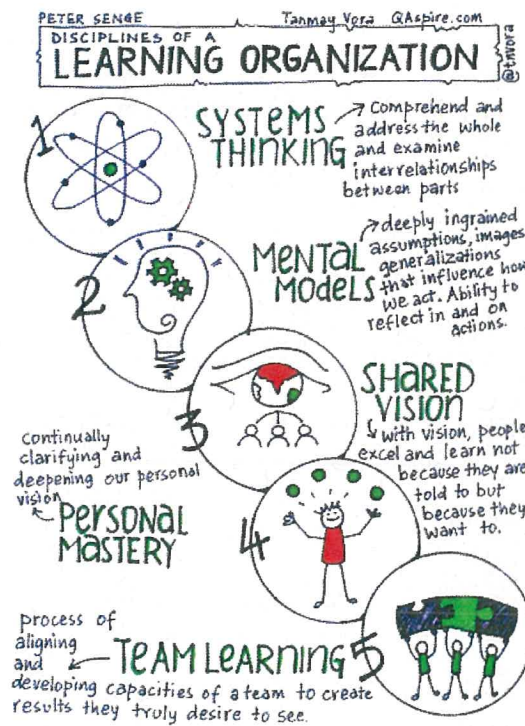 PETER SENGE Tanmay Vora QAspire.com
DISCIPLINES OF A
LEARNING ORGANIZATION
@tnvora
1
SYSTEMS
THINKING
Comprehend and
address the whole
and examine
interrelationships
between parts
2
MENTAL
MODELS
deeply ingrained
assumptions, images
generalizations
that influence how
we act. Ability to
reflect in and on
actions.
3
SHARED
VISION
with vision, people
excel and learn not
because they are
told to but
because they
want to.
continually
clarifying and
deepening our personal
vision
PERSONAL
MASTERY
4
process of
aligning
and
TEAM LEARNING 5
developing capacities of a team to create
results they truly desire to see.